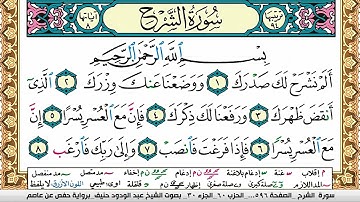 سُورَةُ الشَّرْحِ
ترتيبها ٩٤
آياتها ٨
بِسْمِ اللَّهِ الرَّحْمَٰنِ الرَّحِيمِ
أَلَمْ نَشْرَحْ لَكَ صَدْرَكَ ١ وَوَضَعْنَا عَنكَ وِزْرَكَ ٢ الَّذِي
أَنقَضَ ظَهْرَكَ ٣ وَرَفَعْنَا لَكَ ذِكْرَكَ ٤ فَإِنَّ مَعَ الْعُسْرِ يُسْرًا ٥ إِنَّ
مَعَ الْعُسْرِ يُسْرًا ٦ فَإِذَا فَرَغْتَ فَانصَبْ ٧ وَإِلَىٰ رَبِّكَ فَارْغَب ٨
سورة الشرح الصفحة ٥٩٦ الحزب ٦٠ الجزء ٣٠ بصوت الشيخ عبد الودود حنيف برواية حفص عن عاصم